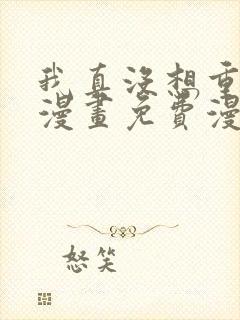 我真没想重
漫畫免費漫
怒笑